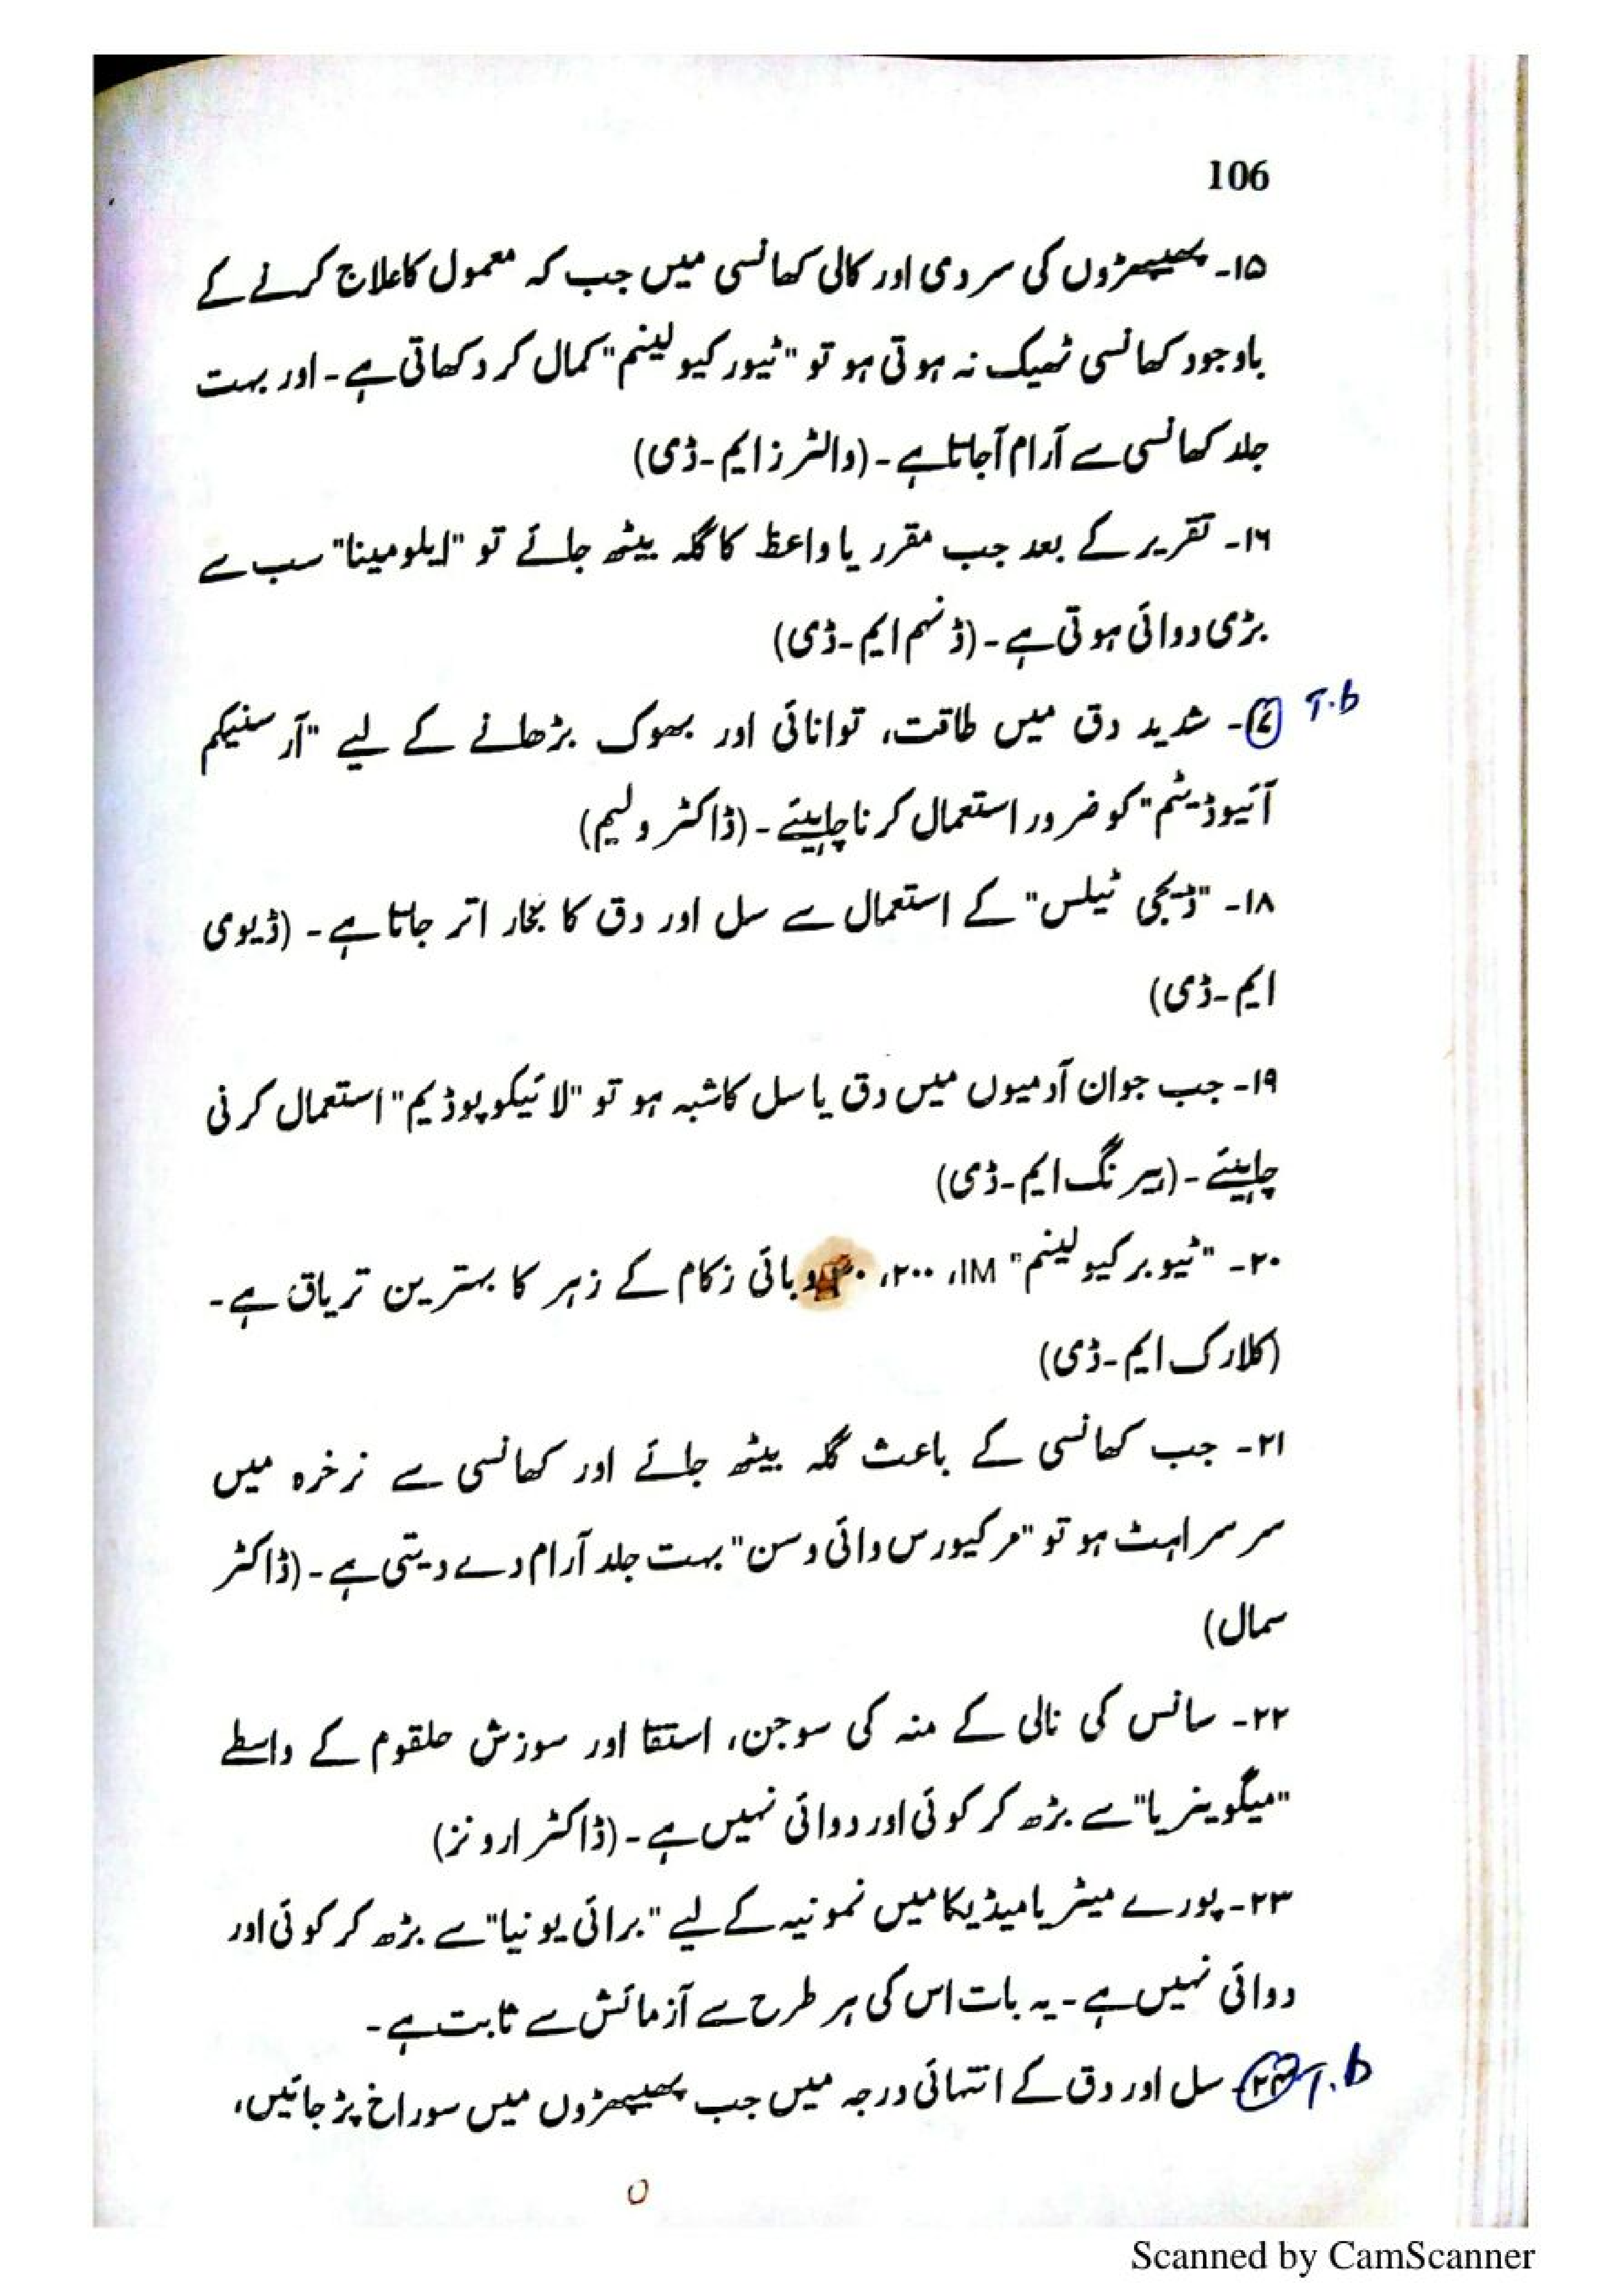 106
۱۵- پھیپھڑوں کی سردی اور کالی کھانسی میں جب کہ معمول کا علاج کرنے کے
باوجود کھانسی ٹھیک نہ ہوتی ہو تو "ٹیور کیو لینم" کمال کر دکھاتی ہے- اور بہت
جلد کھانسی سے آرام آجاتا ہے- (والٹرز ایم-ڈی)
۱۶- تقریر کے بعد جب مقرر یا واعظ کا گلہ بیٹھ جائے تو "ایلومینا" سب سے
بڑی دوائی ہوتی ہے- (ڈنہم ایم-ڈی)
T.b
- شدید دق میں طاقت، توانائی اور بھوک بڑھانے کے لیے "آرسنیکم
آئیوڈیٹم" کو ضرور استعمال کرنا چاہیئے- (ڈاکٹر ولیم)
۱۸- "ڈیجی ٹیلس" کے استعمال سے سل اور دق کا بخار اتر جاتا ہے- (ڈیوی
ایم-ڈی)
۱۹- جب جوان آدمیوں میں دق یا سل کا شبہ ہو تو "لائیکوپوڈیم" استعمال کرنی
چاہیئے- (ہیرنگ ایم-ڈی)
۲۰- "ٹیوبر کیو لینم" IM، ۲۰۰، وبائی زکام کے زہر کا بہترین تریاق ہے-
(کلارک ایم-ڈی)
۲۱- جب کھانسی کے باعث گلہ بیٹھ جائے اور کھانسی سے نرخرہ میں
سرسراہٹ ہو تو "مرکیورس وائی وسن" بہت جلد آرام دے دیتی ہے- (ڈاکٹر
سمال)
۲۲- سانس کی نالی کے منہ کی سوجن، استقا اور سوزش حلقوم کے واسطے
"میگوینریا" سے بڑھ کر کوئی اور دوائی نہیں ہے- (ڈاکٹر ارونز)
۲۳- پورے میٹریا میڈیکا میں نمونیہ کے لیے "برائی یونیا" سے بڑھ کر کوئی اور
دوائی نہیں ہے- یہ بات اس کی ہر طرح سے آزمائش سے ثابت ہے-
T.b
۲۴- سل اور دق کے انتہائی درجہ میں جب پھیپھڑوں میں سوراخ پڑ جائیں،
Scanned by CamScanner